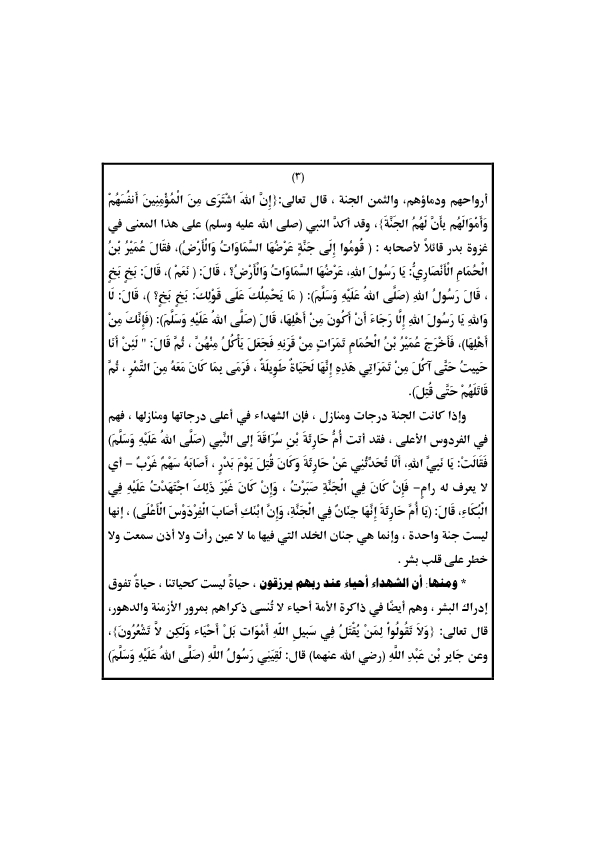 (٣)
أرواحهم ودماؤهم، والثمن الجنة ، قال تعالى:{إِنَّ اللهَ اشْتَرَى مِنَ الْمُؤْمِنِينَ أَنفُسَهُمْ
وَأَمْوَالَهُم بِأَنَّ لَهُمُ الجَنَّةَ}، وقد أكدَّ النبي (صلى الله عليه وسلم) على هذا المعنى في
غزوة بدر قائلاً لأصحابه : ( قُومُوا إِلَى جَنَّةٍ عَرْضُهَا السَّمَاوَاتُ وَالْأَرْضُ)، فقَالَ عُمَيْرُ بْنُ
الْحُمَامِ الْأَنْصَارِيُّ: يَا رَسُولَ اللهِ، عَرْضُهَا السَّمَاوَاتُ وَالْأَرْضُ؟ ، قَالَ: ( نَعَمْ )، قَالَ: بَخٍ بَخٍ
، قَالَ رَسُولُ اللهِ (صَلَّى اللهُ عَلَيْهِ وَسَلَّمَ): ( مَا يَحْمِلُكَ عَلَى قَوْلِكَ: بَخٍ بَخٍ؟ )، قَالَ: لَا
وَاللهِ يَا رَسُولَ اللهِ إِلَّا رَجَاءَ أَنْ أَكُونَ مِنْ أَهْلِهَا، قَالَ (صَلَّى اللهُ عَلَيْهِ وَسَلَّمَ): (فَإِنَّكَ مِنْ
أَهْلِهَا)، فَأَخْرَجَ عُمَيْرُ بْنُ الْحُمَامِ تَمَرَاتٍ مِنْ قَرَنِهِ فَجَعَلَ يَأْكُلُ مِنْهُنَّ ، ثُمَّ قَالَ: " لَئِنْ أَنَا
حَيِيتُ حَتَّى آكُلَ مِنْ تَمَرَاتِي هَذِهِ إِنَّهَا لَحَيَاةٌ طَوِيلَةٌ ، فَرَمَى بِمَا كَانَ مَعَهُ مِنَ التَّمْرِ ، ثُمَّ
قَاتَلَهُمْ حَتَّى قُتِلَ).
وإذا كانت الجنة درجات ومنازل ، فإن الشهداء في أعلى درجاتها ومنازلها ، فهم
في الفردوس الأعلى ، فقد أتت أُمُّ حَارِثَةَ بْنِ سُرَاقَةَ إلى النَّبِي (صَلَّى اللهُ عَلَيْهِ وَسَلَّمَ)
فَقَالَتْ: يَا نَبيَّ اللهِ، أَلَا تُحَدِّثُنِي عَنْ حَارِثَةَ وَكَانَ قُتِلَ يَوْمَ بَدْرٍ ، أَصَابَهُ سَهْمٌ غَرْبٌ - أي
لا يعرف له رامٍ- فَإِنْ كَانَ فِي الْجَنَّةِ صَبَرْتُ ، وَإِنْ كَانَ غَيْرَ ذَلِكَ اجْتَهَدْتُ عَلَيْهِ فِي
الْبُكَاءِ، قَالَ: (يَا أُمَّ حَارِثَةَ إِنَّهَا جِنَانٌ فِي الْجَنَّةِ، وَإِنَّ ابْنَكِ أَصَابَ الْفِرْدَوْسَ الْأَعْلَى) ، إنها
ليست جنة واحدة ، وإنما هي جنان الخلد التي فيها ما لا عين رأت ولا أذن سمعت ولا
خطر على قلب بشر .
* ومنها: أن الشهداء أحياء عند ربهم يرزقون ، حياةً ليست كحياتنا ، حياةٌ تفوق
إدراك البشر ، وهم أيضًا في ذاكرة الأمة أحياء لا تُنسى ذكراهم بمرور الأزمنة والدهور،
قال تعالى: {وَلاَ تَقُولُواْ لِمَنْ يُقْتَلُ فِي سَبِيلِ اللّهِ أَمْوَات بَلْ أَحْيَاء وَلَكِن لاَّ تَشْعُرُونَ}،
وعن جَابِرِ بْنِ عَبْدِ اللَّهِ (رضي الله عنهما) قال: لَقِيَنِي رَسُولُ اللَّهِ (صَلَّى اللهُ عَلَيْهِ وَسَلَّمَ)